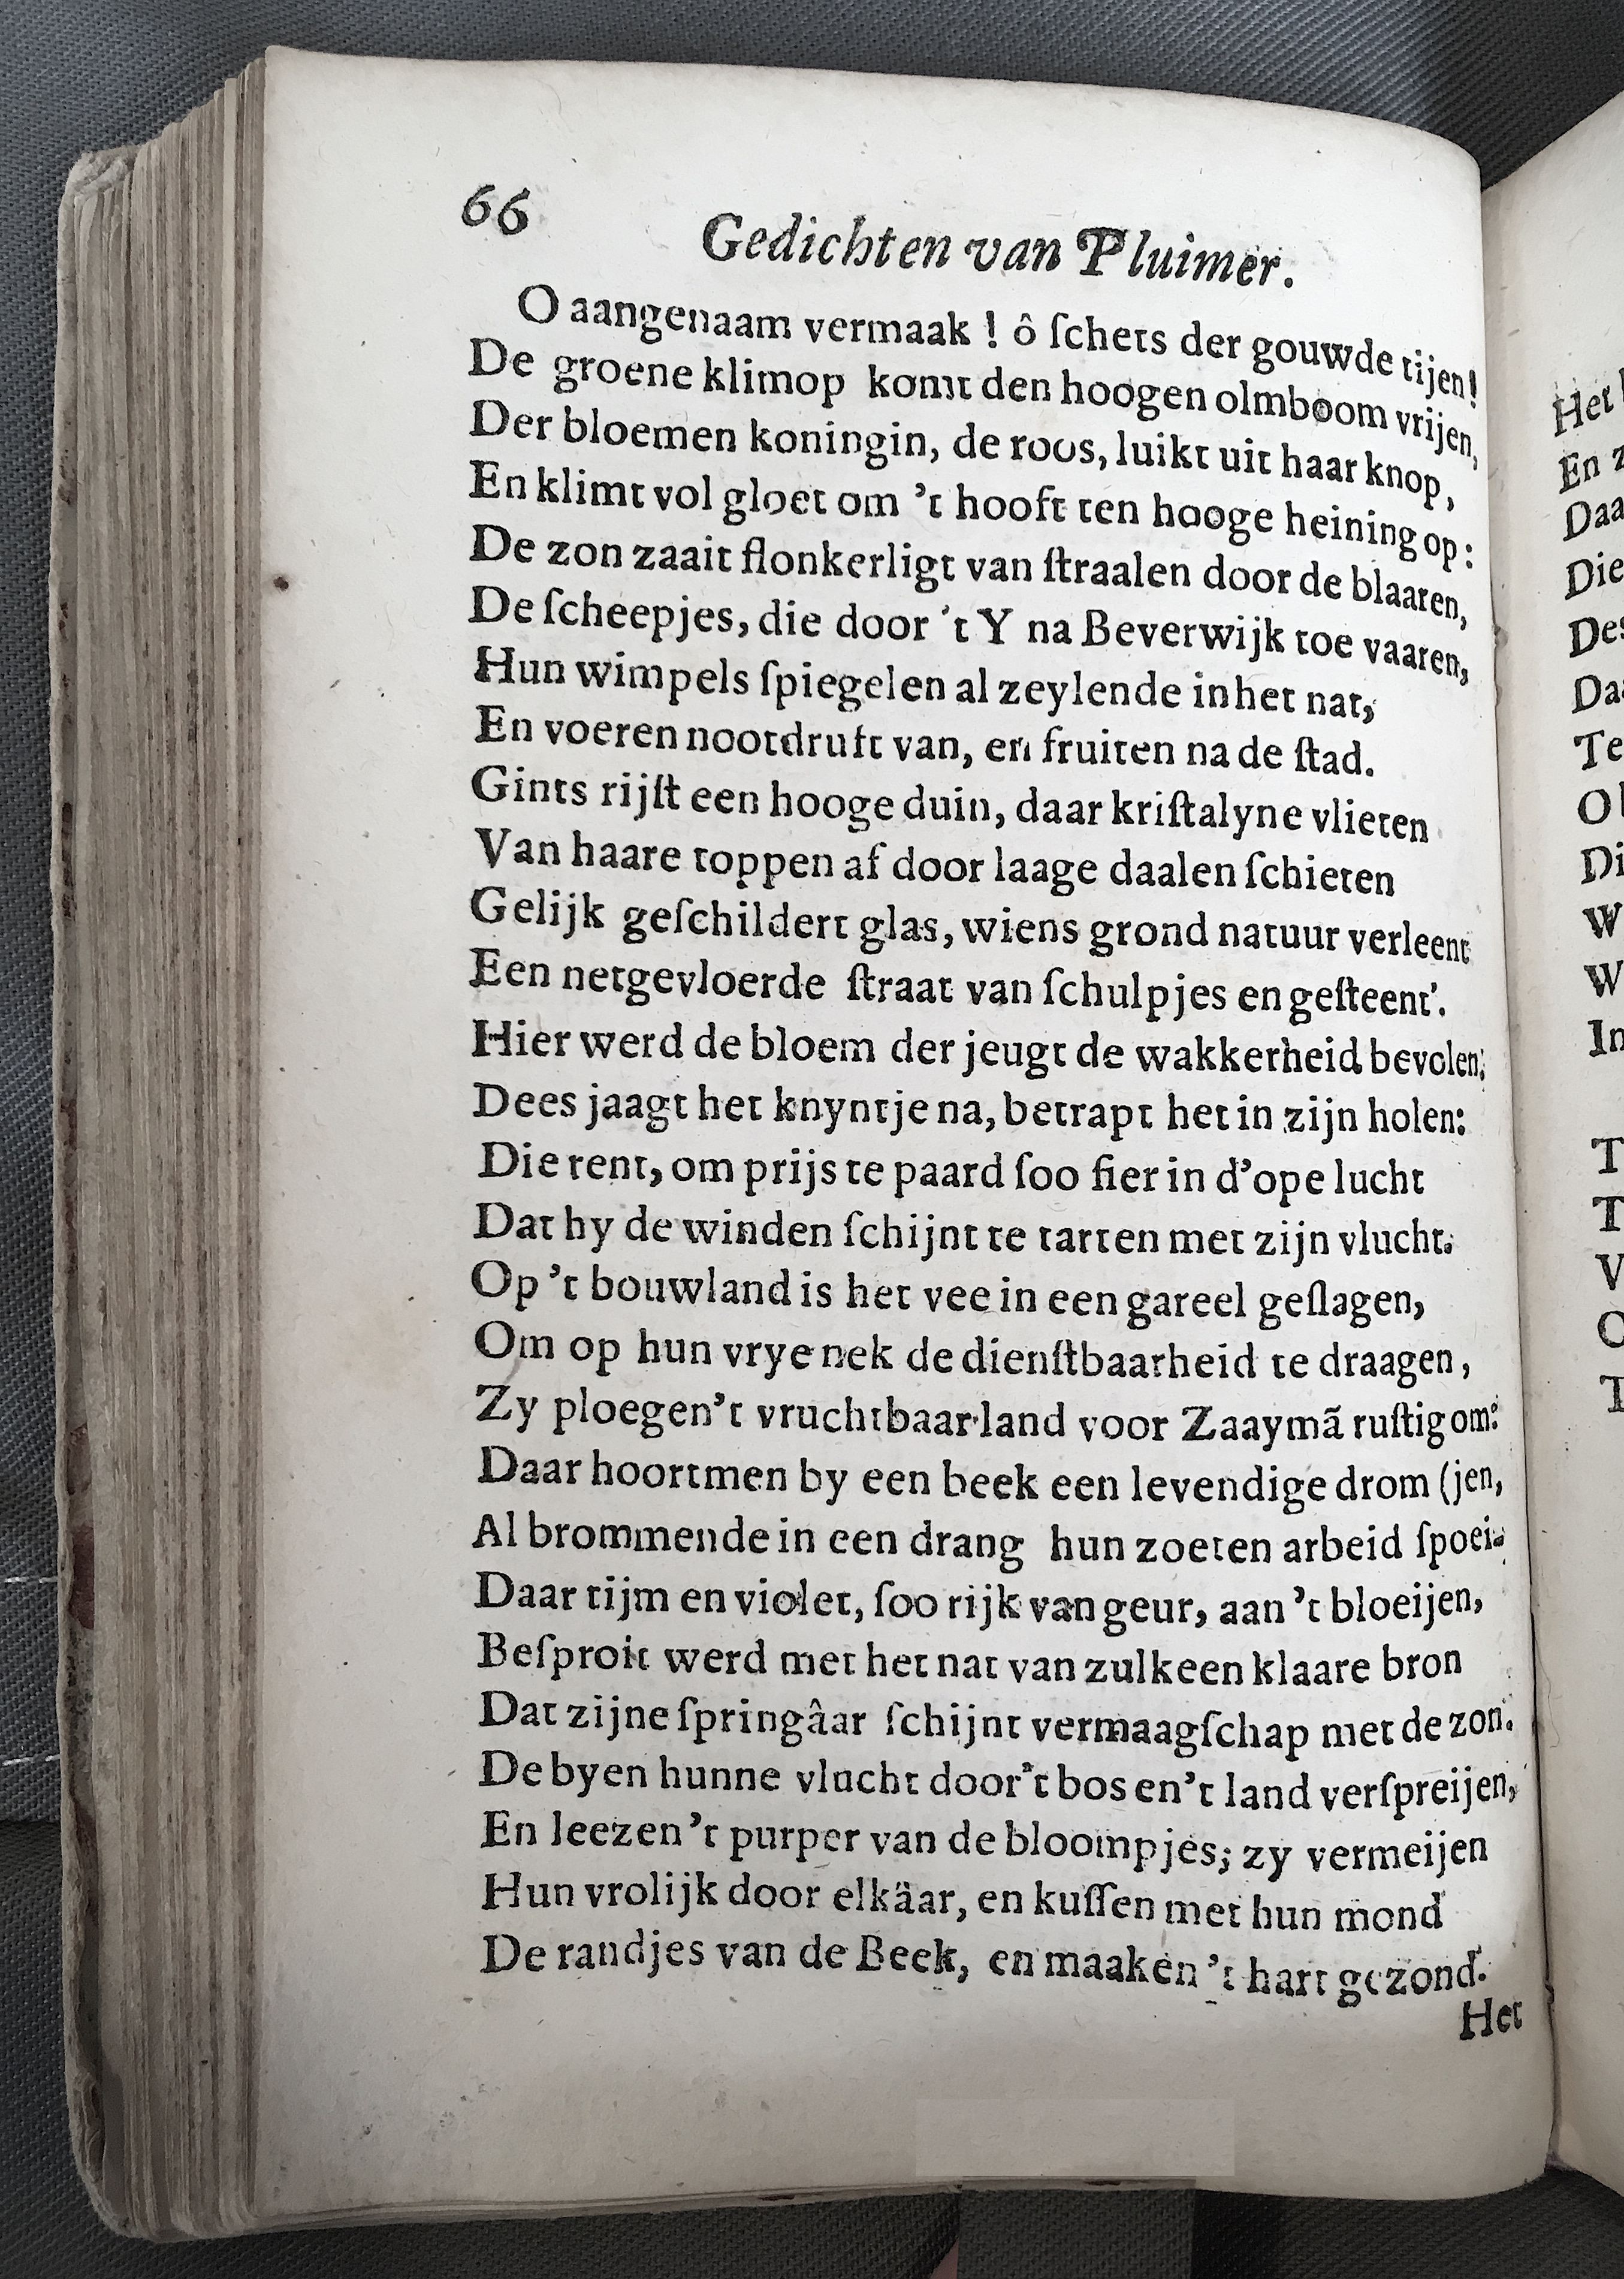 66
Gedichten van Pluimer.
O aangenaam vermaak ! ô ſchets der gouwde tijen!
De groene klimop komt den hoogen olmboom vrijen,
Der bloemen koningin, de roos, luikt uit haar knop,
En klimt vol gloet om 't hooft ten hooge heining op:
De zon zaait flonkerligt van ſtraalen door de blaaren,
De ſcheepjes, die door 't Y na Beverwijk toe vaaren,
Hun wimpels ſpiegelen al zeylende in het nat,
En voeren nootdruft van, en fruiten na de ſtad.
Gints rijſt een hooge duin, daar kriſtalyne vlieten
Van haare toppen af door laage daalen ſchieten
Gelijk geſchildert glas, wiens grond natuur verleent
Een netgevloerde ſtraat van ſchulpjes en geſteent'.
Hier werd de bloem der jeugt de wakkerheid bevolen;
Dees jaagt het knyntje na, betrapt het in zijn holen:
Die rent, om prijs te paard ſoo fier in d'ope lucht
Dat hy de winden ſchijnt te tarten met zijn vlucht.
Op 't bouwland is het vee in een gareel geſlagen,
Om op hun vrye nek de dienſtbaarheid te draagen,
Zy ploegen 't vruchtbaar land voor Zaaymã ruſtig om:
Daar hoortmen by een beek een levendige drom (jen,
Al brommende in een drang hun zoeten arbeid ſpoei-
Daar tijm en violet, ſoo rijk van geur, aan 't bloeijen,
Beſproit werd met het nat van zulk een klaare bron
Dat zijne ſpringâar ſchijnt vermaagſchap met de zon.
De byen hunne vlucht door 't bos en 't land verſpreijen,
En leezen 't purper van de bloompjes; zy vermeijen
Hun vrolijk door elkäar, en kuſſen met hun mond
De randjes van de Beek, en maaken 't hart gezond.
Het
Het
En
Daa
Die
Des
Te
O
Di
W
W
In
T
T
V
O
T